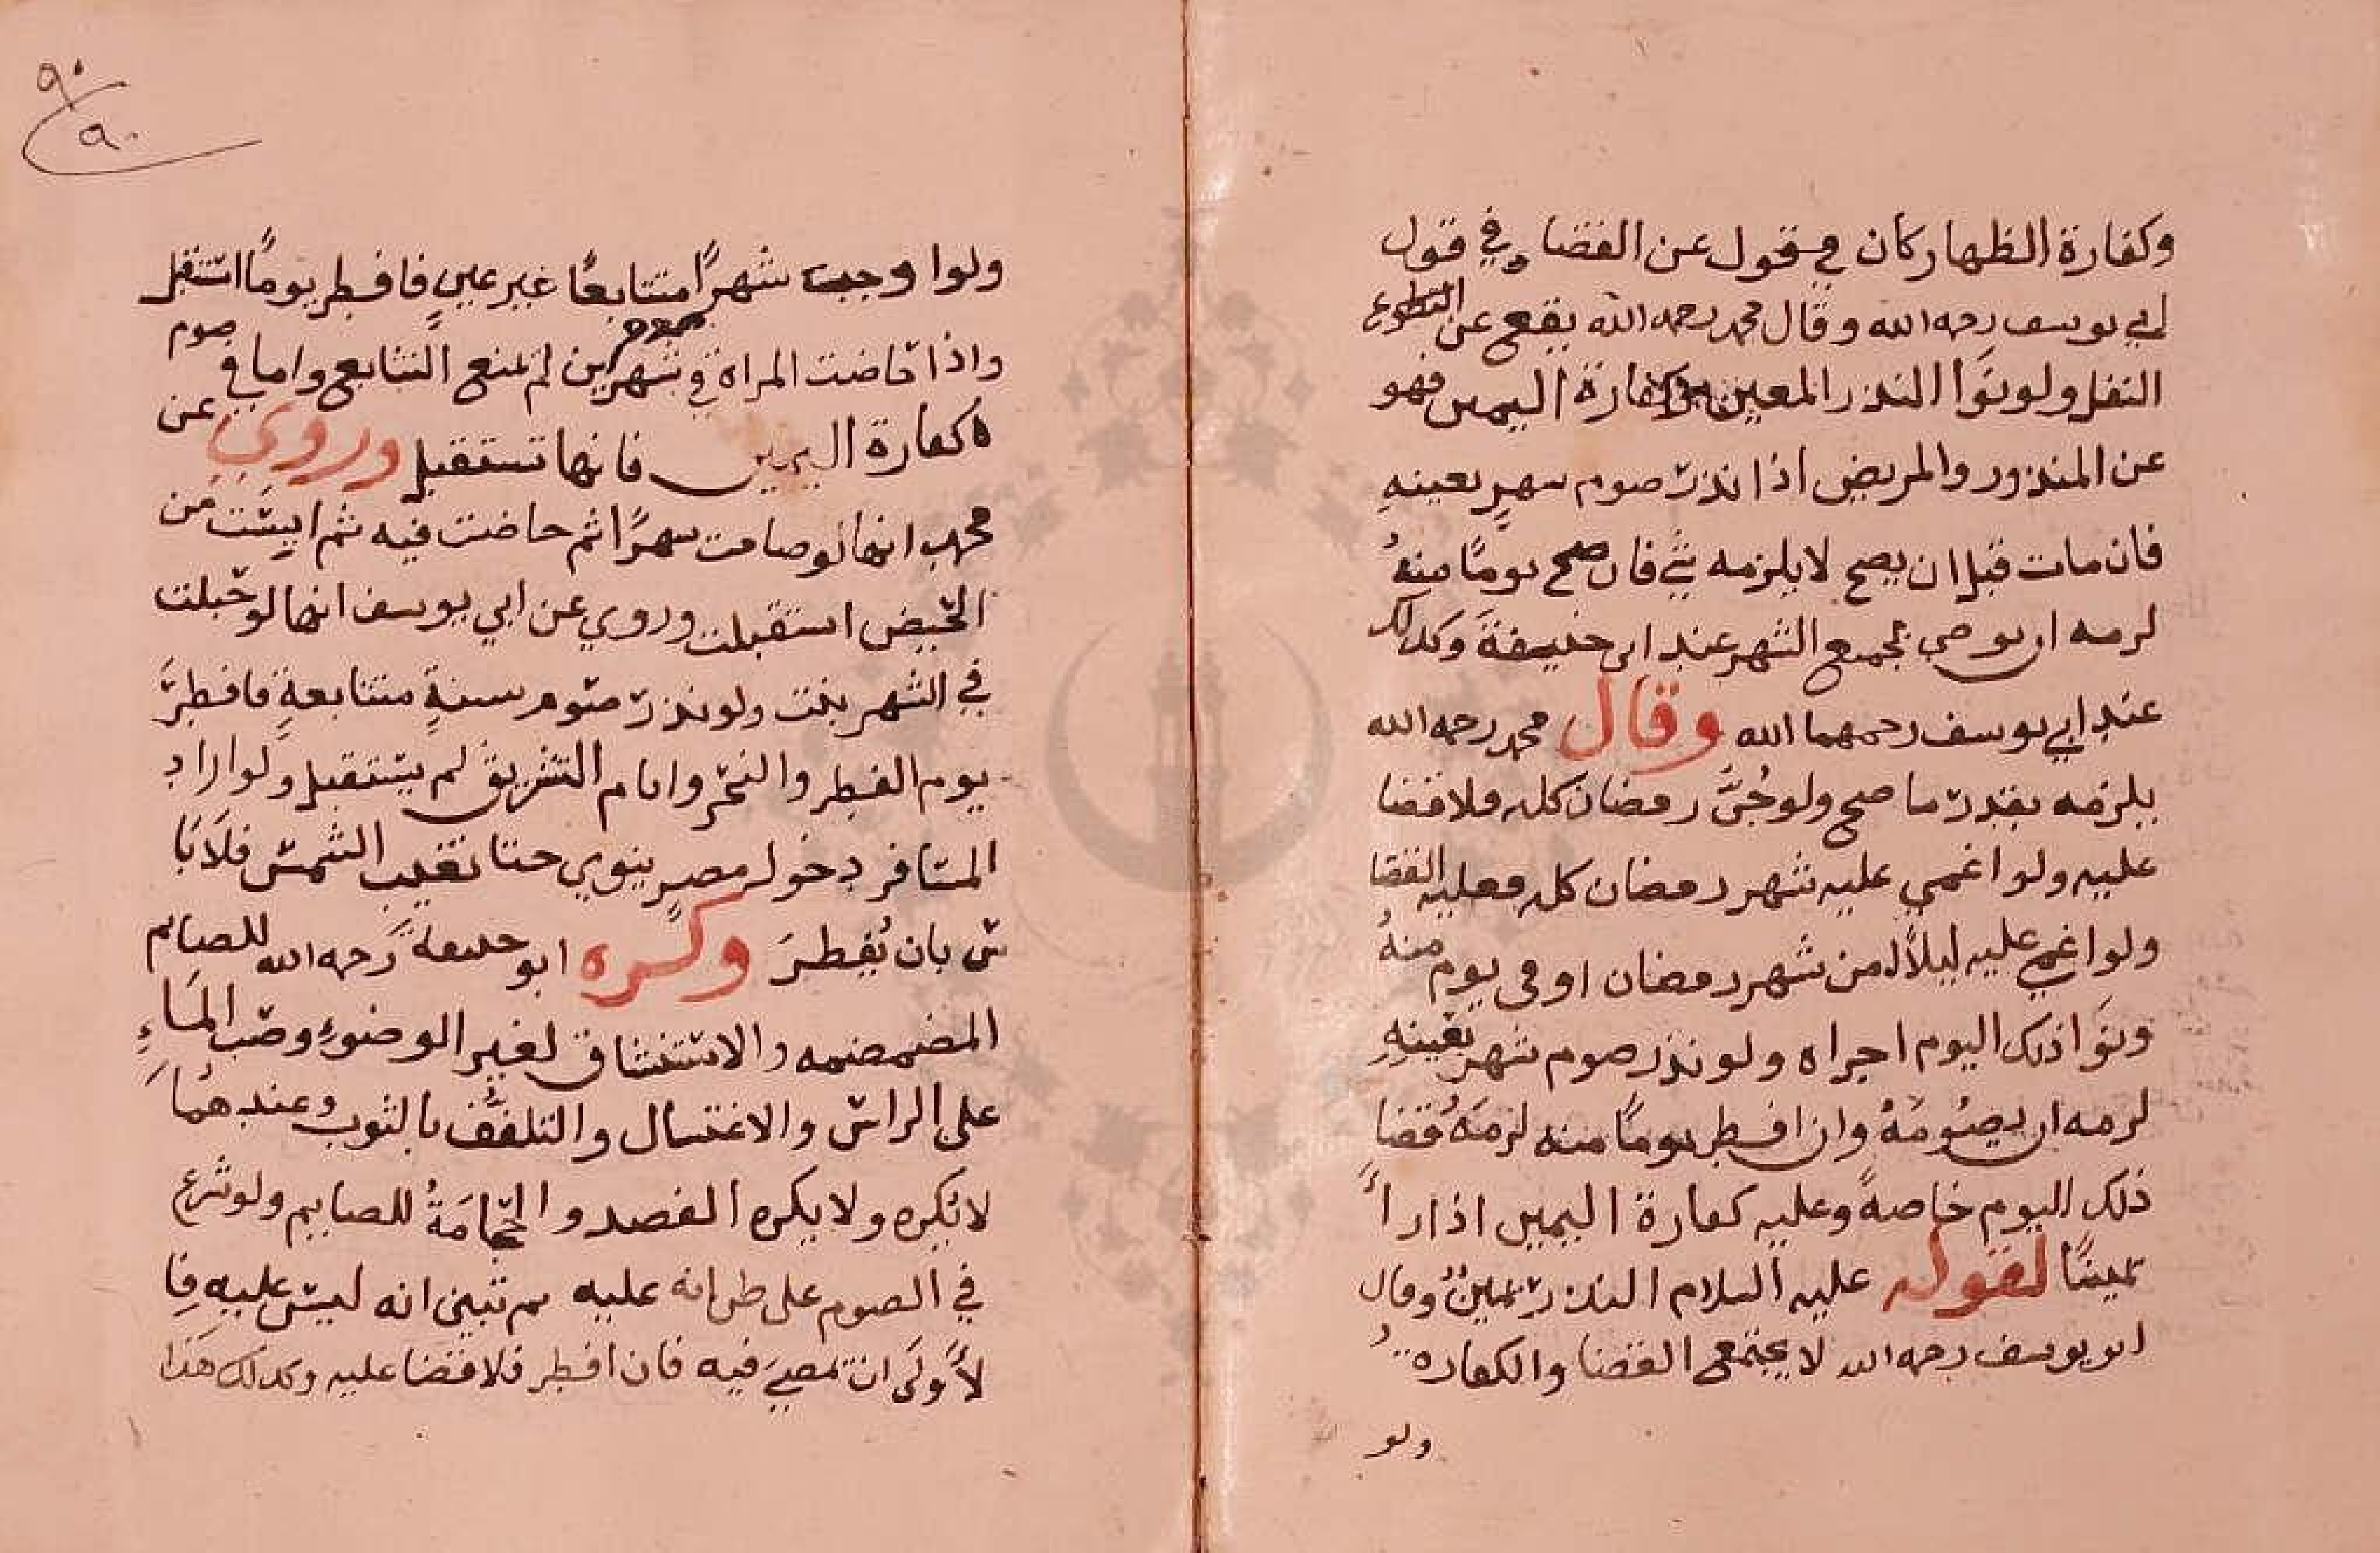 وكفارة الظهار كان في قول عن القضا وفي قول
لابي يوسف رحمه الله وقال محمد رحمه الله يقع عن التطوع
النفل ولو نوا النذر المعين كفارة اليمين فهو
عن المنذور والمريض اذا نذر صوم شهر بعينه
فان مات قبل ان يصح لا يلزمه شي فان صح يوما منه
لزمه ان يوصي بجميع الشهر عند ابي حنيفة وكذلك
عند ابي يوسف رحمهما الله وقال محمد رحمه الله
يلزمه بقدر ما صح ولو جن رمضان كله فلا قضا
عليه ولو اغمي عليه شهر رمضان كله فعليه القضا
ولو اغمي عليه ليلا من شهر رمضان او في يوم منه
ونوا ذلك اليوم اجراه ولو نذر صوم شهر بعينه
لزمه ان يصومه وان افطر يوما منه لزمه قضا
ذلك اليوم خاصة وعليه كفارة اليمين اذا اراد
يمينا لقوله عليه السلام النذر يمين وقال
ابو يوسف رحمه الله لا يجتمعي القضا والكفاره
ولو
٩٠
٩٠
ولوا وجبت شهرا متتابعا غير عين فافطر يوما استقبل
واذا حاضت المراة في شهرين لم يمنع التتابع واما في صوم
كفارة اليمين فانها تستقبل وروي عن
محمد انها لو صامت شهرا ثم حاضت فيه ثم ايست من
الحيض استقبلت وروي عن ابي يوسف انها لو حبلت
في الشهر بنت ولو نذر صوم سنة متتابعة فافطر
يوم الفطر والنحر وايام التشريق لم يستقبل ولو اراد
المسافر دخول مصر ينوي حتا تغيب الشمس فلا با
س بان يفطر وكره ابو حنيفة رحمه الله للصايم
المضمضمه والاستنشاق لغير الوضوء وصب الماء
على الراس والاغتسال والتلفف بالثوب وعندهما
لا يكره ولا يكره الفصد والحجامة للصايم ولو شرع
في الصوم على ظن انه عليه ثم تبين انه ليس عليه فا
لاولى ان يمضي فيه فان افطر فلا قضا عليه وكذلك هذا